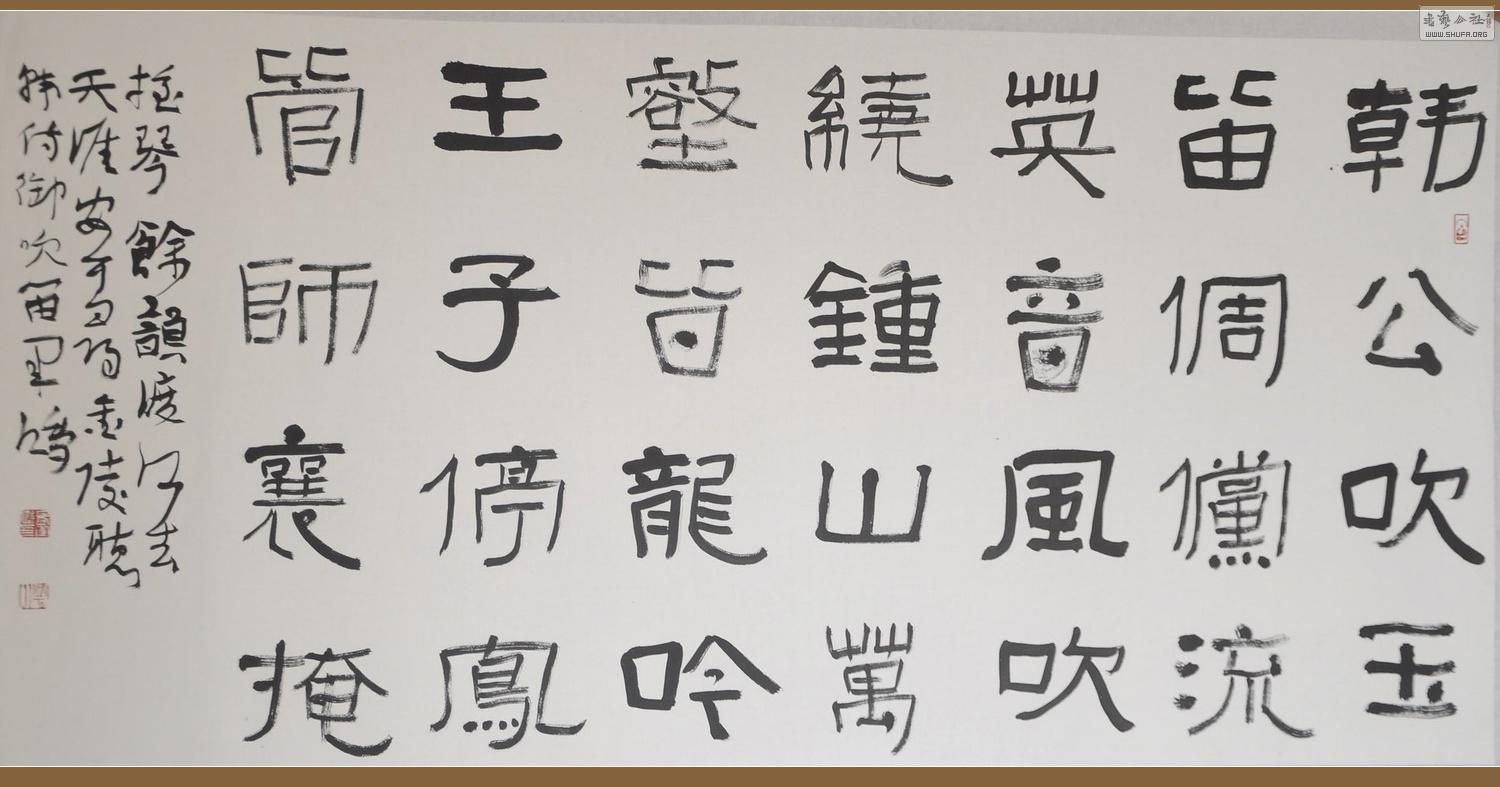 韓公吹玉
笛倜儻流
英音風吹
繞鍾山萬
壑皆龍吟
王子停鳳
管師襄掩
揺琴餘韻渡江去
天涯安可尋 金陵聽
韩侍御吹笛
書藝公社
WWW.SHUFA.ORG